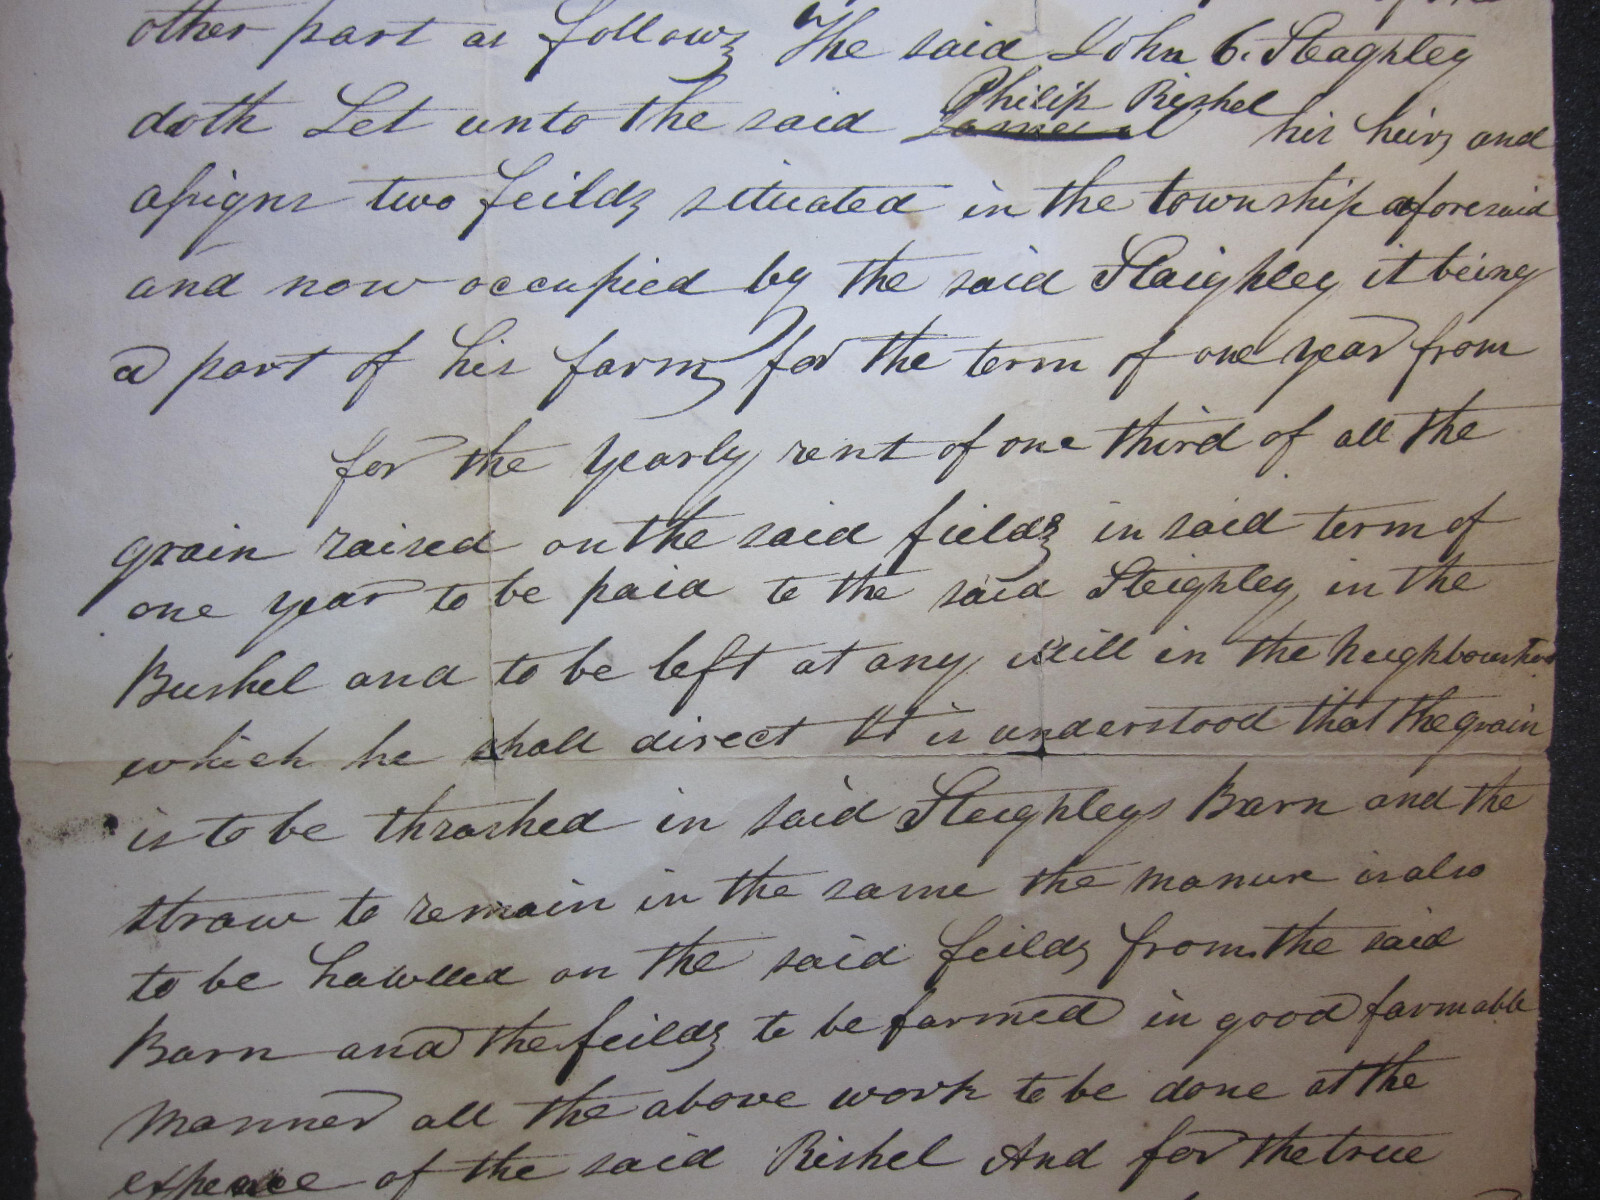 other part as follows The said John C. Steaghley
doth Let unto the said Philip Rishel his heirs and
assigns two feilds situated in the township aforesaid
and now occupied by the said Slaighley it being
a part of his farm for the term of one year from
for the yearly rent of one third of all the
grain raised on the said fields in said term of
one year to be paid to the said Sleighley in the
Bushel and to be left at any Mill in the Neighbourhood
which he shall direct It is understood that the grain
is to be thrashed in said Sleighleys Barn and the
straw to remain in the same the manure is also
to be hawlled on the said feilds from the said
Barn and the feilds to be farmed in good farmable
manner all the above work to be done at the
expence of the said Rishel And for the true